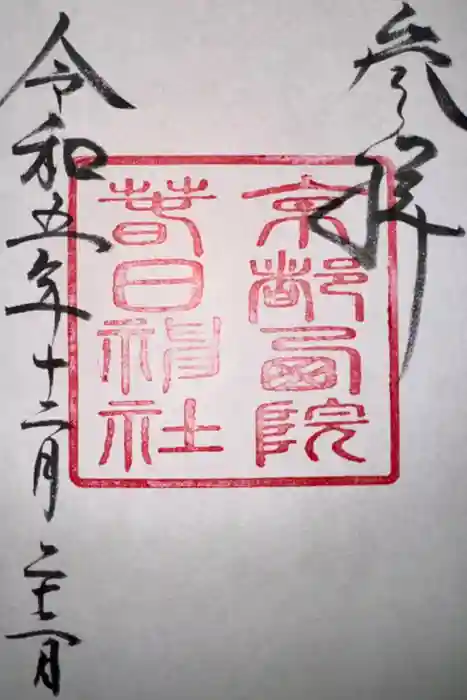 参拝
京都西院
春日神社
令和五年十二月